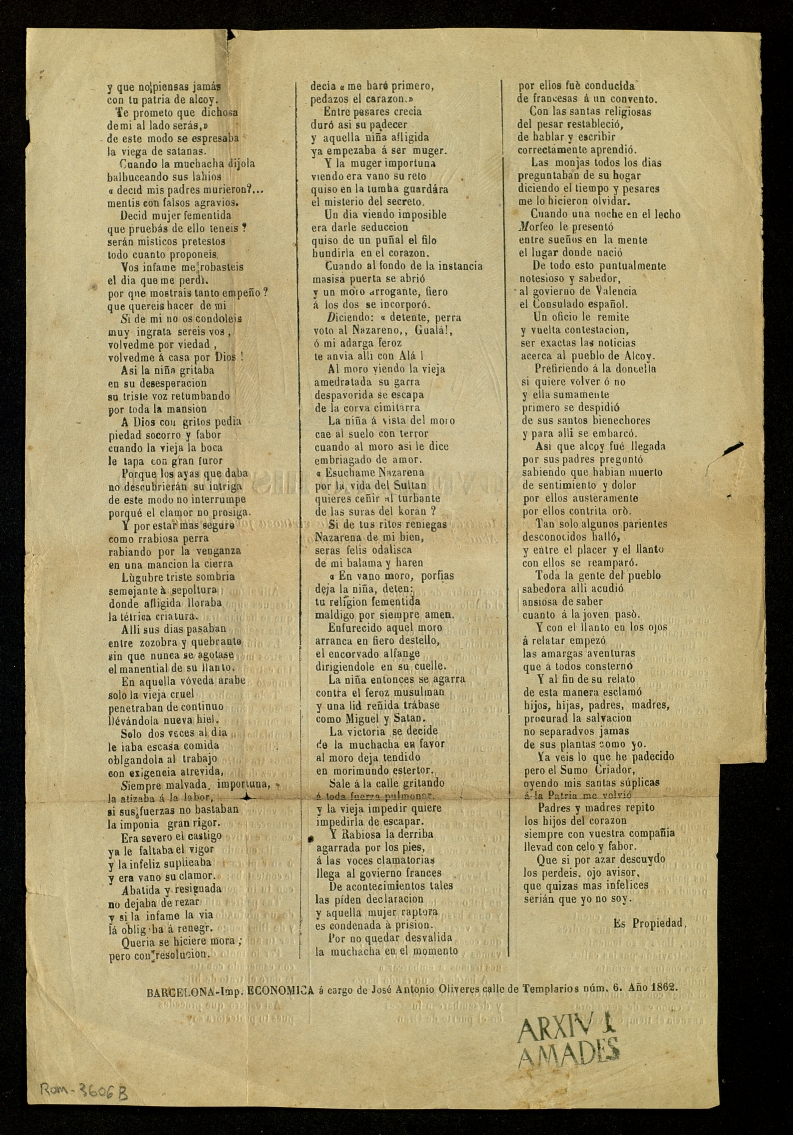 y que no piensas jamás
con tu patria de alcoy.
Te prometo que dichosa
demi al lado serás,»
de este modo se espresaba
la viega de satanas.
Cuando la muchacha dijola
balbuceando sus labios
« decid mis padres murieron?...
mentis con falsos agravios.
Decid mujer fementida
que pruebás de ello teneis ?
serán misticos pretestos
todo cuanto proponeis.
Vos infame me robasteis
el dia que me perdi.
por que mostrais tanto empeño ?
que quereis hacer de mi
Si de mi no os condoleis
muy ingrata sereis vos ,
volvedme por viedad ,
volvedme á casa por Dios !
Asi la niña gritaba
en su desesperacion
su triste voz retumbando
por toda la mansion
A Dios con gritos pedia
piedad socorro y fabor
cuando la vieja la boca
le tapa con gran furor
Porque los ayas que daba
no descubrierán su intriga
de este modo no interrumpe
porqué el clamor no prosiga.
Y por estar mas seguro
como rrabiosa perra
rabiando por la venganza
en una mancion la cierra
Lùgubre triste sombria
semejante à sepoltura
donde afligida lloraba
la tétrica criatura.
Alli sus dias pasaban
entre zozobra y quebranto
sin que nunca se agotase
el manential de su llanto.
En aquella vóveda arabe
solo la vieja cruel
penetraban de continuo
llévándola nueva hiel.
Solo dos veces al dia
le iaba escasa comida
oblgandola al trabajo
con exigencia atrevida,
Siempre malvada importuna,
la atizaba á la labor,
si sus fuerzas no bastaban
la imponia gran rigor.
Era severo el castigo
ya le faltaba el vigor
y la infeliz suplicaba
y era vano su clamor.
Abatida y resignada
no dejaba de rezar
y si la infame la via
lá oblig ba á renegr.
Queria se hiciere mora ;
pero con resolucion.
decia « me haró primero,
pedazos el carazon.»
Entre pesares crecia
duró asi su padecer
y aquella niña afligida
ya empezaba á ser muger.
Y la muger importuna
viendo era vano su reto
quiso en la tumba guardára
el misterio del secreto.
Un dia viendo imposible
era darle seduccion
quiso de un puñal el filo
hundirla en el corazon.
Cuando al fondo de la instancia
masisa puerta se abrió
y un moro arrogante, fiero
á los dos se incorporó.
Diciendo: « detente, perra
voto al Nazareno,, Gualá!,
ó mi adarga feroz
te anvia alli con Alá !
Al moro viendo la vieja
amedratada su garra
despavorida se escapa
de la corva cimitarra
La niña á vista del moro
cae al suelo con terror
cuando al moro asi le dice
embriagado de amor.
« Esuchame Nazarena
por la vida del Sultan
quieres ceñir al turbante
de las suras del koran ?
Si de tus ritos reniegas
Nazarena de mi bien,
seras felis odalisca
de mi balama y haren
« En vano moro, porfias
deja la niña, deten;
tu religion fementida
maldigo por siempre amen.
Enfurecido aquel moro
arranca en fiero destello,
el encorvado alfange
dirigiendole en su cuelle.
La niña entonces se agarra
contra el feroz musulman
y una lid reñida trábase
como Miguel y Satan.
La victoria se decide
de la muchacha en favor
al moro deja tendido
en morimundo estertor.
Sale á la calle gritando
á toda fuerza pulmonar
y la vieja impedir quiere
impedirla de escapar.
Y Rabiosa la derriba
agarrada por los pies,
á las voces clamatorias
llega al govierno frances
De acontecimientos tales
las piden declaracion
y aquella mujer raptora
es condenada à prision.
Por no quedar desvalida
la muchacha en el momento
por ellos fuè conducida
de francesas á un convento.
Con las santas religiosas
del pesar restableció,
de hablar y escribir
correctamente aprendió.
Las monjas todos los dias
preguntaban de su hogar
diciendo el tiempo y pesares
me lo hicieron olvidar.
Cuando una noche en el lecho
Morfeo le presentó
entre sueños en la mente
el lugar donde nació
De todo esto puntualmente
notesioso y sabedor,
al govierno de Valencia
el Consulado español.
Un oficio le remite
y vuelta contestacion,
ser exactas las noticias
acerca al pueblo de Alcoy.
Prefiriendo á la doncella
si quiere volver ó no
y ella sumamente
primero se despidió
de sus santos bienechores
y para alli se embarcó.
Asi que alcoy fué llegada
por sus padres preguntó
sabiendo que habian muerto
de sentimiento y dolor
por ellos austeramente
por ellos contrita orò.
Tan solo algunos parientes
desconocidos halló,
y entre el placer y el llanto
con ellos se reamparó.
Toda la gente del pueblo
sabedora alli acudió
ansiosa de saber
cuanto á la joven pasò.
Y con el llanto en los ojos
á relatar empezó
las amargas aventuras
que á todos consternó
Y al fin de su relato
de esta manera esclamó
hijos, hijas, padres, madres,
procurad la salvacion
no separadvos jamas
de sus plantas como yo.
Ya veis lo que he padecido
pero el Sumo Criador,
oyendo mis santas súplicas
á la Patria me volvió
Padres y madres repito
los hijos del corazon
siempre con vuestra compañia
llevad con celo y fabor.
Que si por azar descuydo
los perdeis, ojo avisor,
que quizas mas infelices
serián que yo no soy.
Es Propiedad.
BARCELONA-Imp. ECONOMICA á cargo de José Antonio Oliveres calle de Templarios núm. 6. Año 1862.
ARXIV J.
AMADES
Rom-3606B